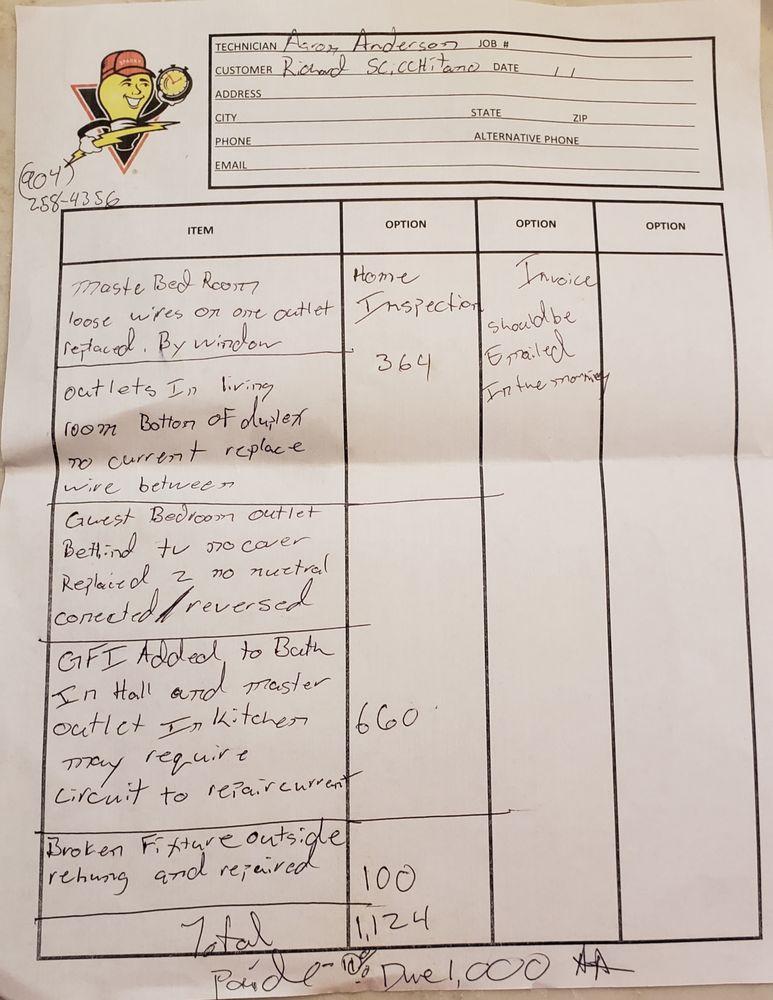 TECHNICIAN Aaron Anderson JOB #
CUSTOMER Richard SCiCCHitano DATE / /
ADDRESS
CITY STATE ZIP
PHONE ALTERNATIVE PHONE
EMAIL
SPARKY
(904)
258-4356
ITEM OPTION OPTION OPTION
Maste Bed Room
loose wires on one outlet
replaced. By window
Home
Inspection
364
Invoice
should be
Emailed
In the morning
outlets In living
room Bottom OF duplex
no current replace
wire between
Guest Bedroom outlet
Behind tv no cover
Replaced 2 no nuetral
conected/reversed
GFI Added to Bath
In Hall and master
outlet In Kitchen
may require
circuit to repair current
660
Broken Fixture outside
rehung and repaired
100
Total 1,124
Paid Due 1,000 AA